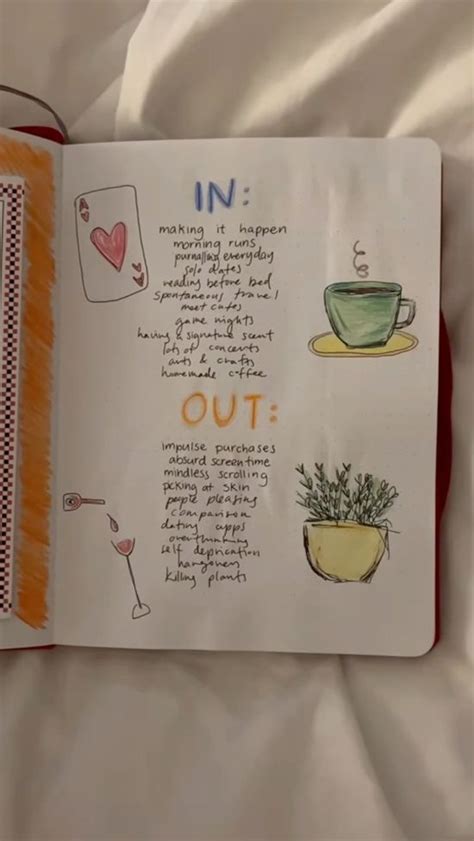 A
IN:
making it happen
morning runs
journaling everyday
solo dates
reading before bed
spontaneous travel
meet cutes
game nights
having a signature scent
lots of concerts
arts & crafts
homemade coffee
OUT:
impulse purchases
absurd screen time
mindless scrolling
picking at skin
people pleasing
comparison
dating apps
overthinking
self deprication
hangovers
killing plants